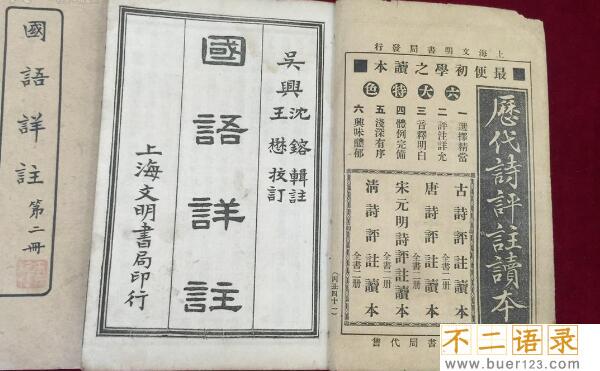 國語詳註 第二冊
吳興 沈鎔輯註
王懋校訂
國語詳註
上海文明書局印行
上海文明書局發行
歷代詩評註讀本
最便初學之讀本
六大特色
一 選擇精當
二 評註詳允
三 音釋明白
四 體例完備
五 淺深有序
六 興味醲郁
古詩評註讀本 全書二冊
唐詩評註讀本 全書二冊
宋元明詩評註讀本 全書二冊
清詩評註讀本 全書二冊
書局代售
不二语录
www.buer123.com